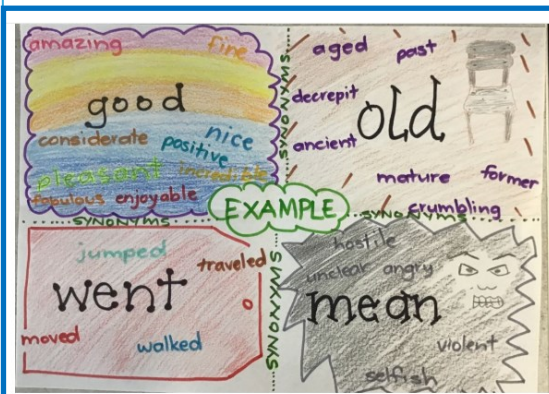 amazing
fine
good
considerate
positive
nice
pleasant
incredible
fabulous
enjoyable
SYNONYMS
SYNONYMS
aged
past
decrepit
old
ancient
mature
former
crumbling
SYNONYMS
EXAMPLE
jumped
traveled
went
moved
walked
SYNONYMS
hostile
unclear
angry
mean
violent
selfish